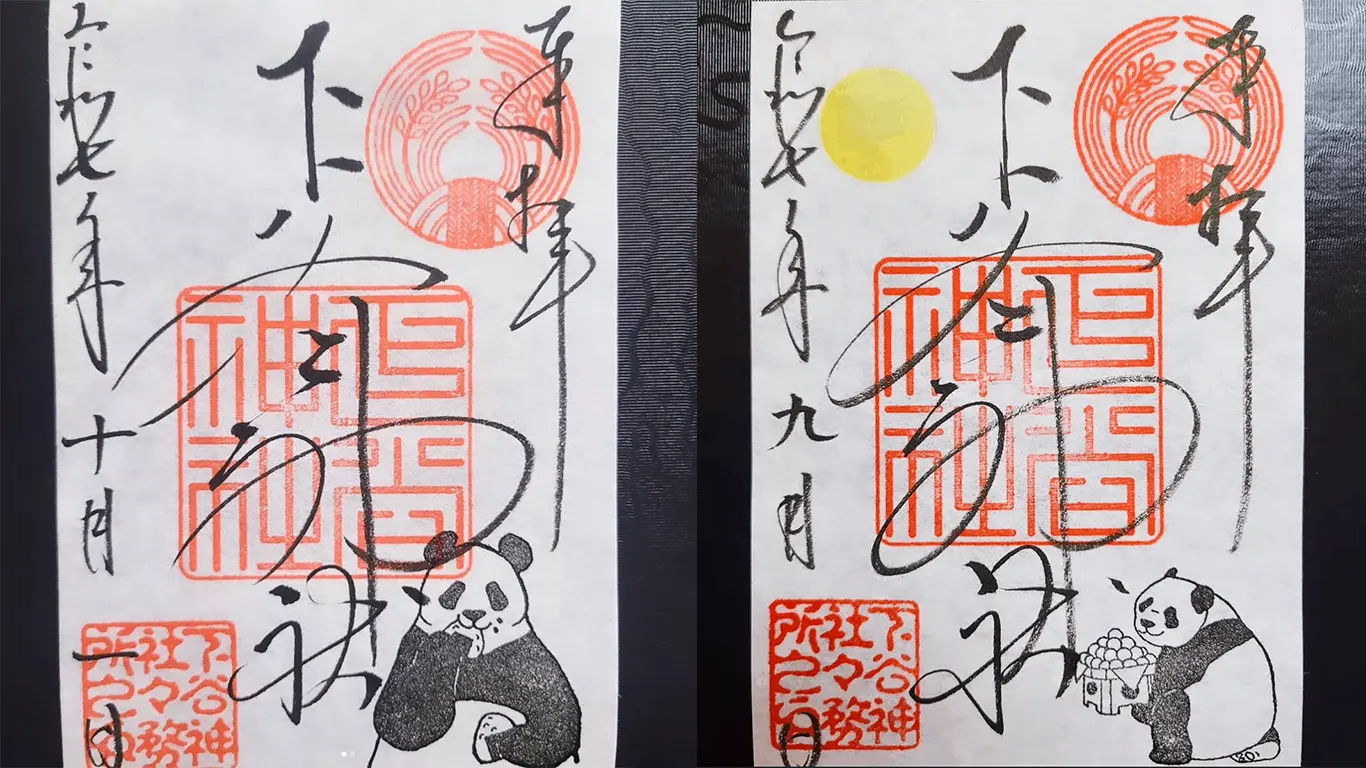 奉拝
下谷神社
令和七年十月一日
下谷神
社々務
所之印
奉拝
下谷神社
令和七年九月 日
下谷神
社々務
所之印